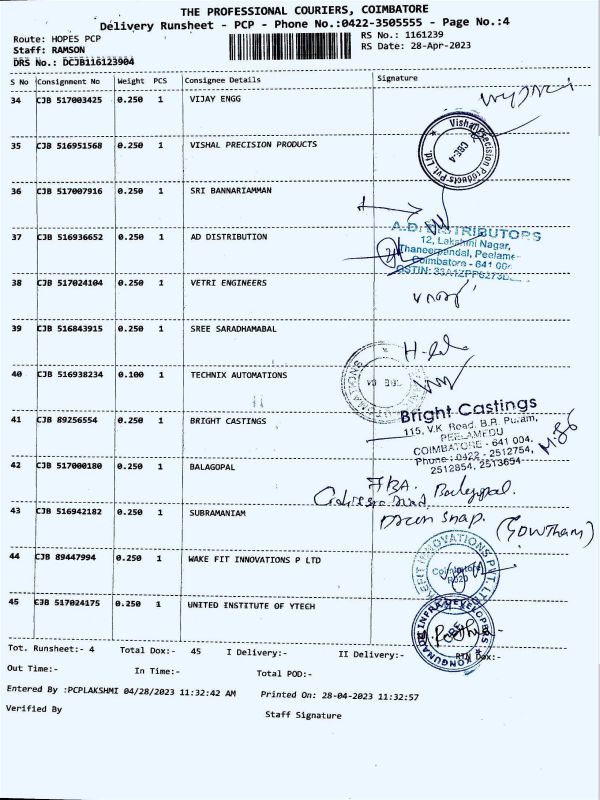 THE PROFESSIONAL COURIERS, COIMBATORE
Delivery Runsheet - PCP - Phone No.:0422-3505555 - Page No.:4
Route: HOPES PCP
RS No.: 1161239
Staff: RAMSON
RS Date: 28-Apr-2023
DRS No.: DCJB116123904
S No Consignment No Weight PCS Consignee Details Signature
34 CJB 517003425 0.250 1 VIJAY ENGG
35 CJB 516951568 0.250 1 VISHAL PRECISION PRODUCTS
Vishal Precision Products Pvt. Ltd.
CBE-4
36 CJB 517007916 0.250 1 SRI BANNARIAMMAN
37 CJB 516936652 0.250 1 AD DISTRIBUTION
A.D. DISTRIBUTORS
12, Lakshmi Nagar,
Thaneerpandal, Peelame
Coimbatore - 641 00
38 CJB 517024104 0.250 1 VETRI ENGINEERS
39 CJB 516843915 0.250 1 SREE SARADHAMABAL
40 CJB 516938234 0.100 1 TECHNIX AUTOMATIONS
41 CJB 89256554 0.250 1 BRIGHT CASTINGS
Bright Castings
115, V.K. Road, B.R. Puram,
PEELAMEDU
COIMBATORE - 641 004.
Phone: 0422 - 2512754,
2512854, 2513654
42 CJB 517000180 0.250 1 BALAGOPAL
43 CJB 516942182 0.250 1 SUBRAMANIAM
(GOWTHAM)
44 CJB 89447994 0.250 1 WAKE FIT INNOVATIONS P LTD
45 CJB 517024175 0.250 1 UNITED INSTITUTE OF YTECH
KONGUNADU INFRA DEVELOPERS
Tot. Runsheet:- 4 Total Dox:- 45 I Delivery:- II Delivery:- RTN Dox:-
Out Time:- In Time:- Total POD:-
Entered By :PCPLAKSHMI 04/28/2023 11:32:42 AM Printed On: 28-04-2023 11:32:57
Verified By Staff Signature